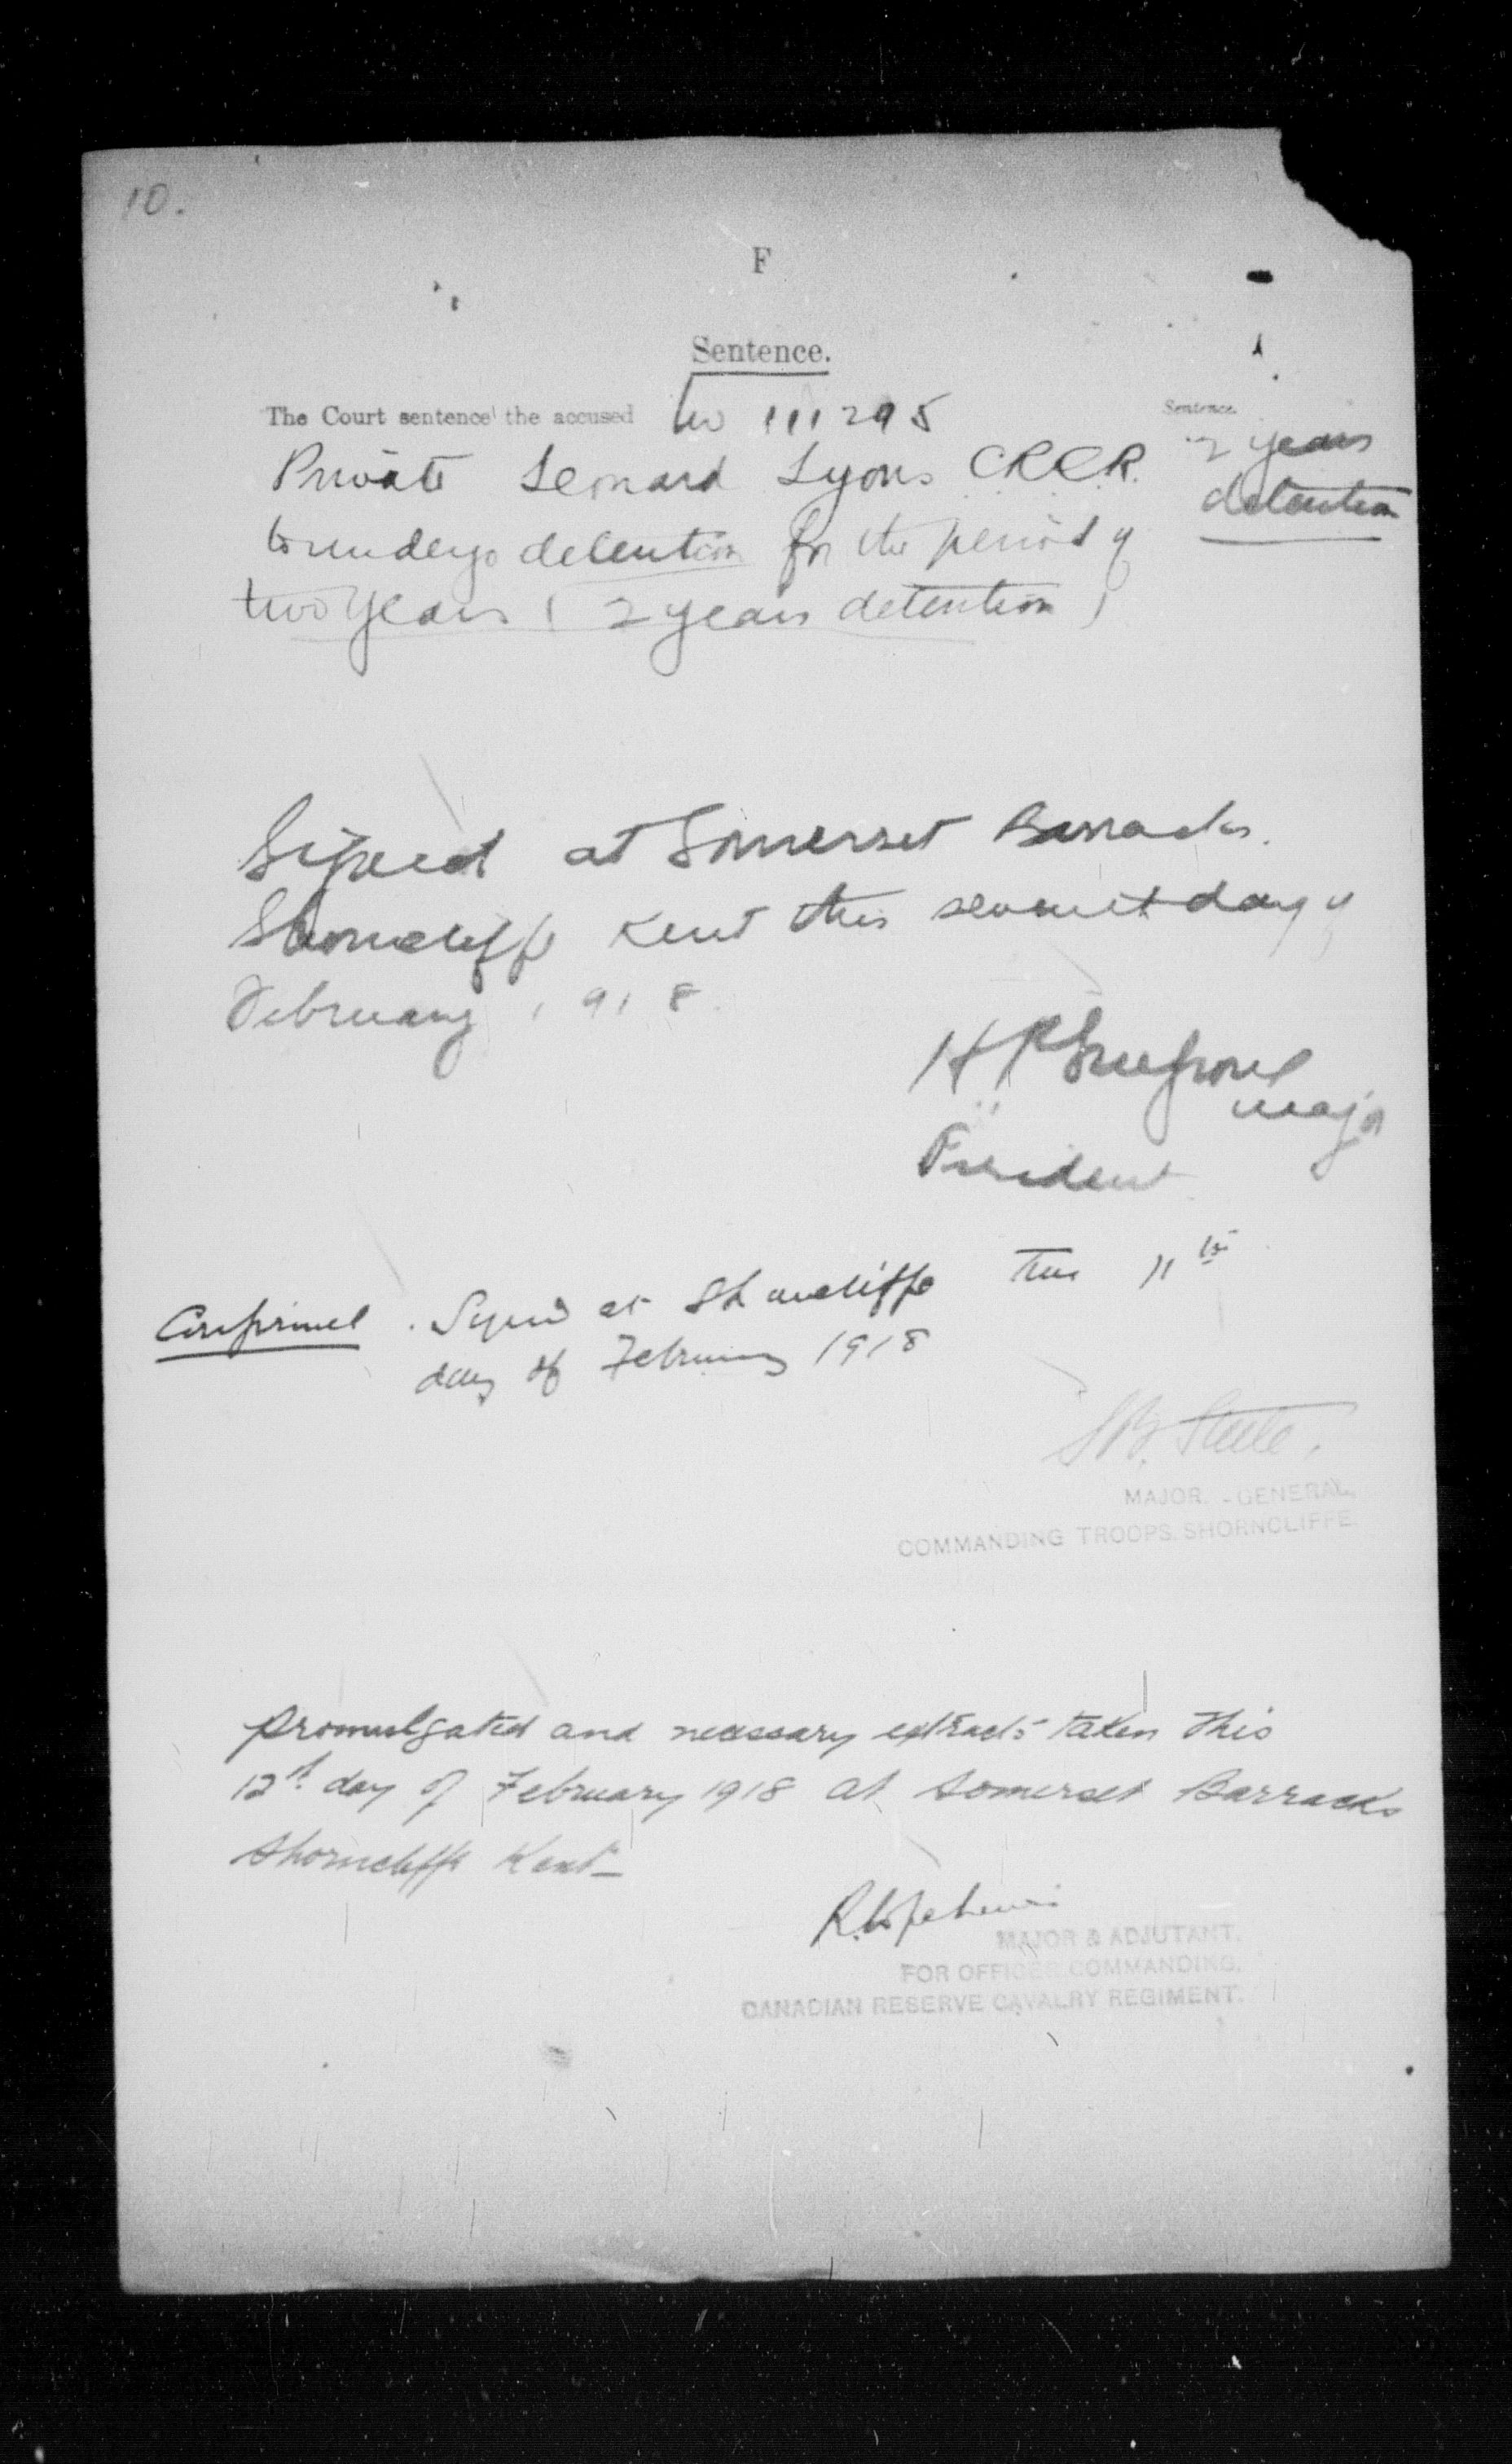 10.
F
Sentence.
The Court sentence the accused No 111295
Sentence.
Private Leonard Lyons C.R.C.R.
2 years
detention
to undergo detention for the period of
two years ( 2 years detention )
Signed at Somerset Barracks.
Shorncliffe Kent this seventh day of
February 1918.
Major
President
Confirmed. Signed at Shorncliffe this 11th
day of February 1918
S B. Steele.
MAJOR - GENERAL,
COMMANDING TROOPS. SHORNCLIFFE.
promulgated and necessary extracts taken this
12th day of February 1918 at Somerset Barracks
Shorncliffe Kent
MAJOR & ADJUTANT.
FOR OFFICER COMMANDING,
CANADIAN RESERVE CAVALRY REGIMENT.